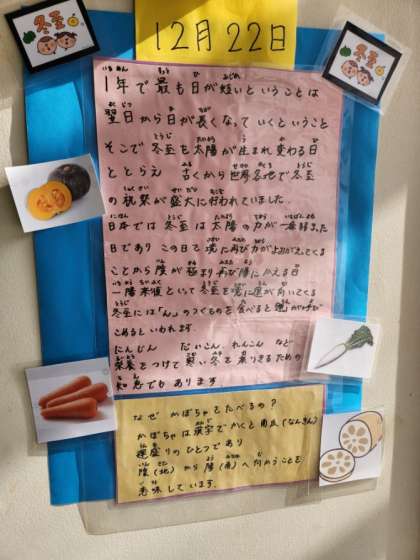 冬至
12月22日
冬至
1年で最も日が短いということは
翌日から日が長くなっていくということ
そこで冬至を太陽が生まれ変わる日
ととらえ 古くから世界各地で冬至
の祝祭が盛大に行われていました
日本では冬至は太陽の力が一番弱まった
日であり この日を境に再び力がよみがえってくる
ことから陰が極まり再び陽にかえる日
一陽来復といって冬至を境に運が向いてくる
冬至には「ん」のつくものを食べると運が呼び
こめるといわれます
にんじん だいこん れんこん など
栄養をつけて寒い冬を乗りきるための
知恵でもあります
なぜ かぼちゃをたべるの？
かぼちゃは漢字でかくと南瓜(なんきん)
運盛りのひとつであり
陰(北)から陽(南)へ向かうことを
意味しています